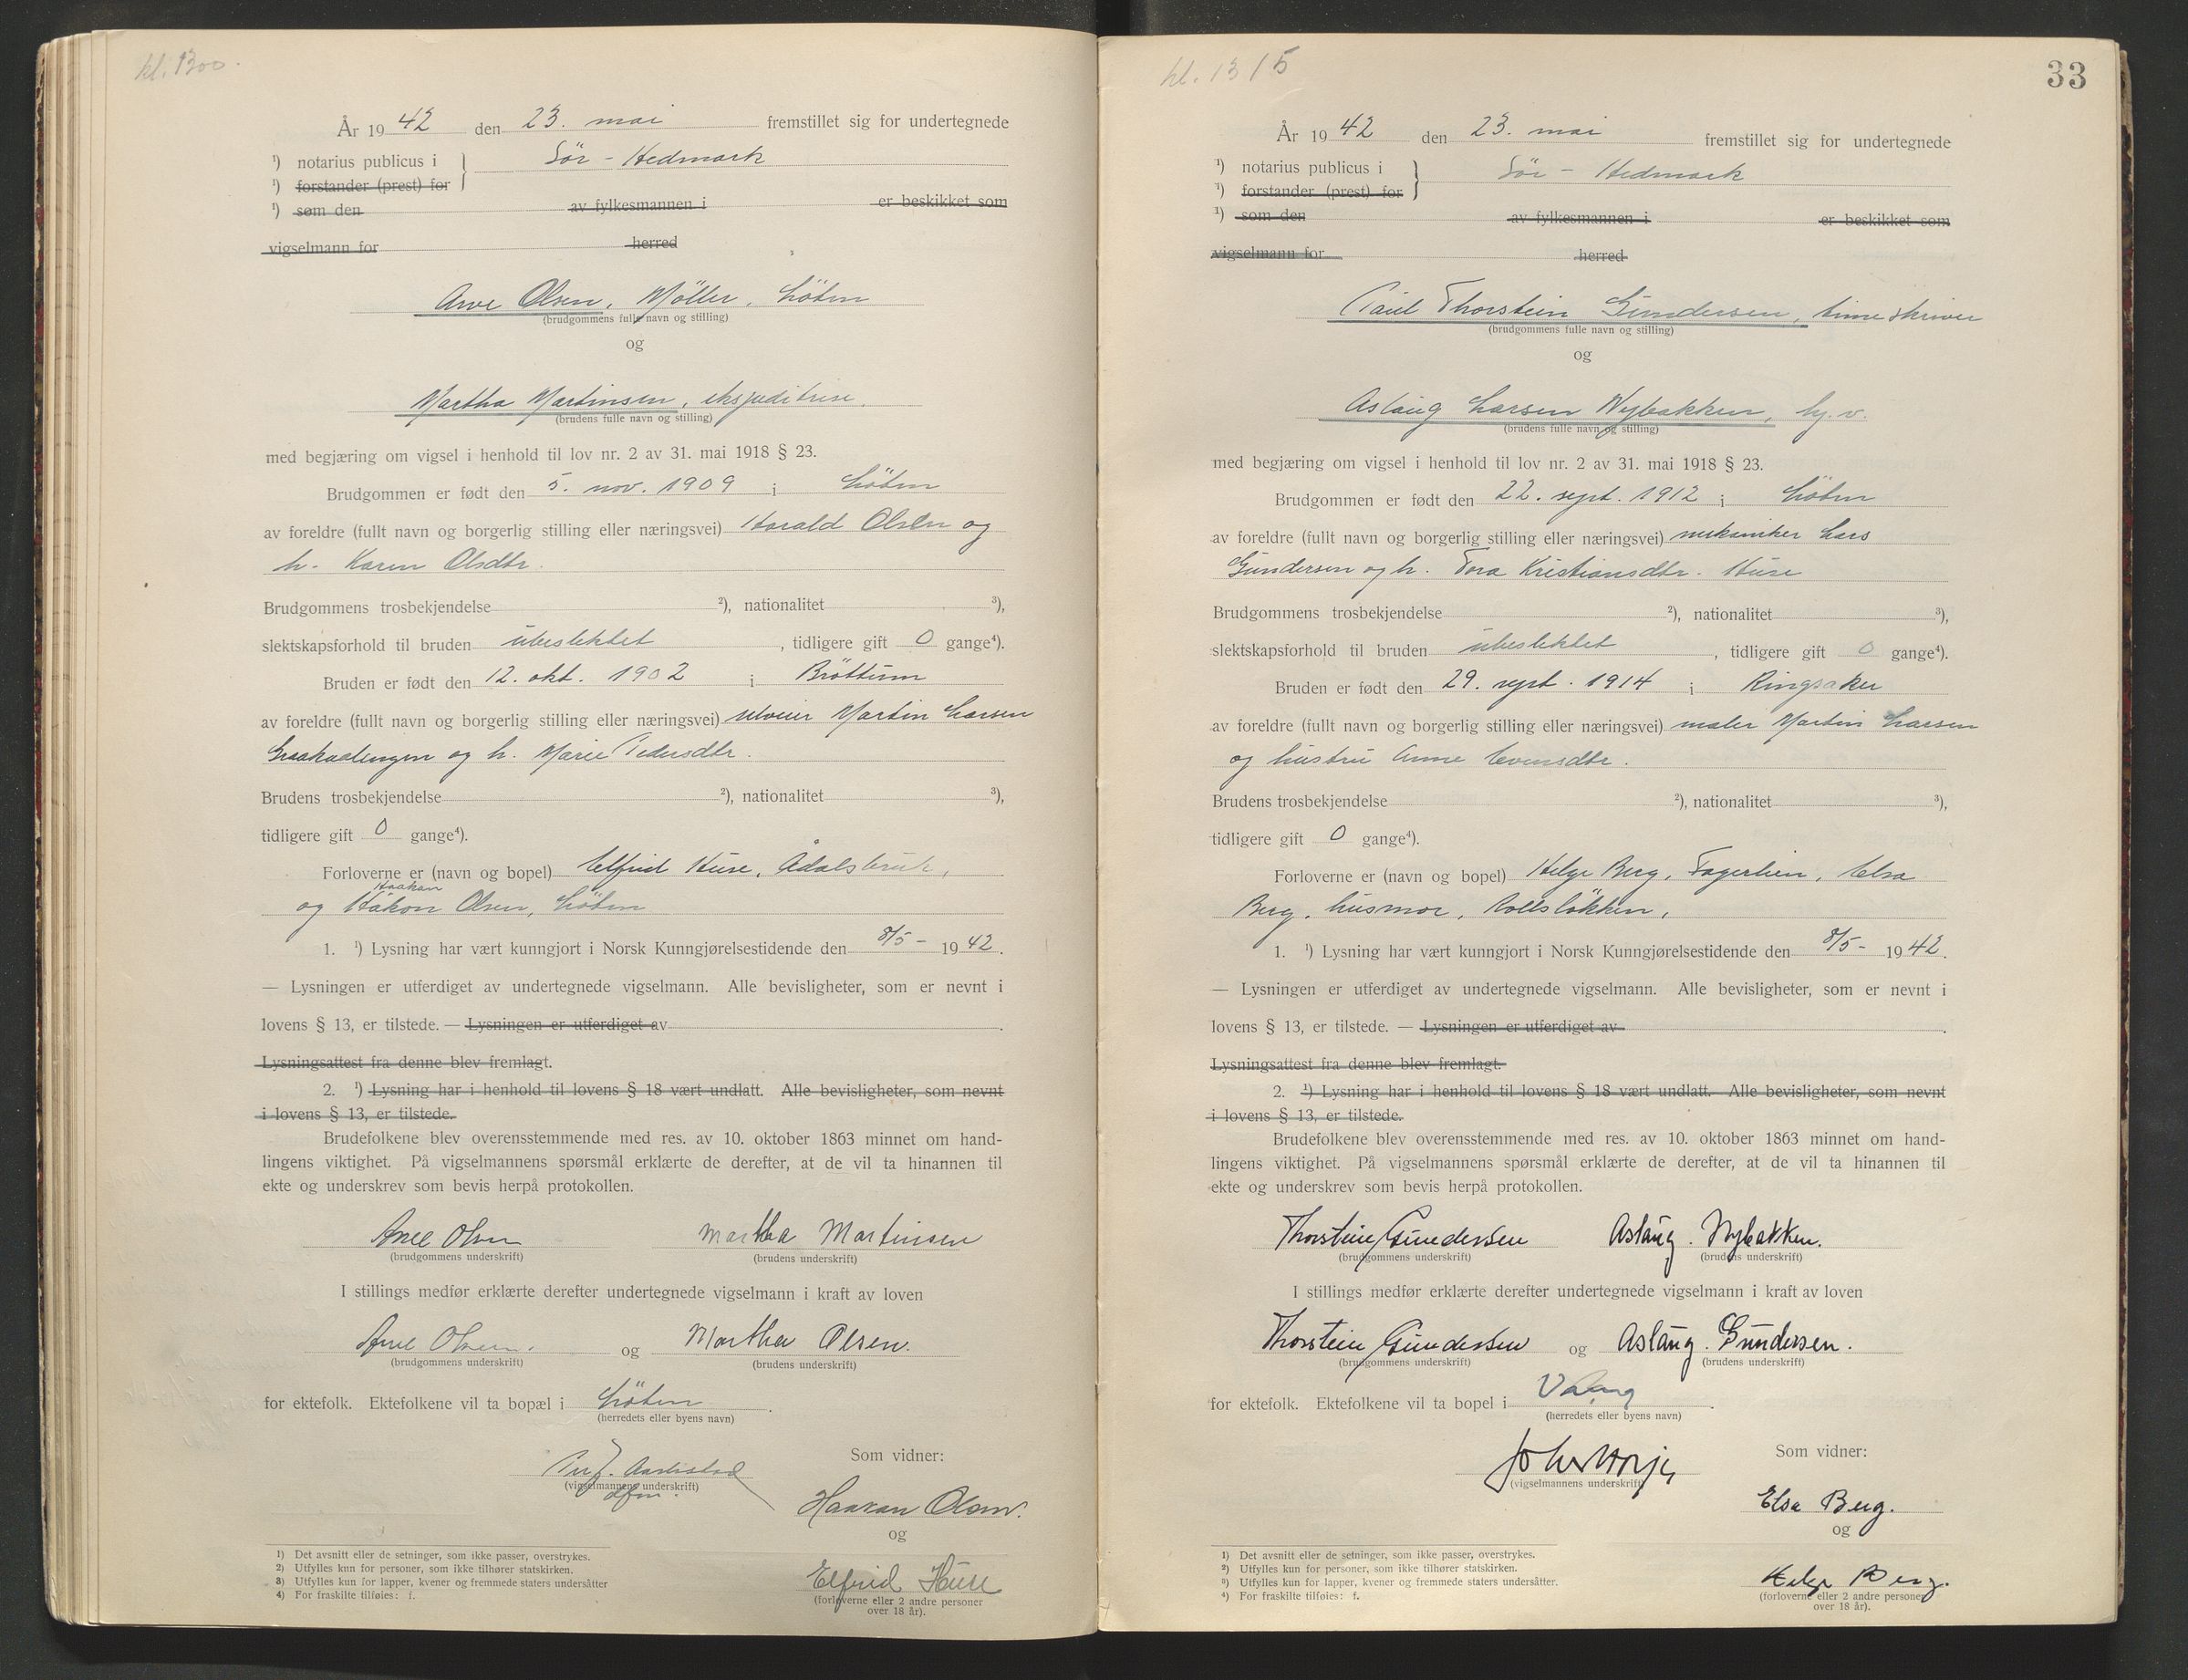 kl. 1300.
År 1942 den 23. mai fremstillet sig for undertegnede
¹) notarius publicus i Sör - Hedmark
¹) forstander (prest) for
¹) som den av fylkesmannen i er beskikket som
vigselmann for herred
Arve Olsen, Möller, Löten
(brudgommens fulle navn og stilling)
og
Martha Martinsen, ekspeditrise.
(brudens fulle navn og stilling)
med begjæring om vigsel i henhold til lov nr. 2 av 31. mai 1918 § 23.
Brudgommen er født den 5. nov. 1909 i Löten
av foreldre (fullt navn og borgerlig stilling eller næringsvei) Harald Olsen og
h. Karen Olsdtr.
Brudgommens trosbekjendelse ²), nationalitet ³),
slektskapsforhold til bruden ubeslektet, tidligere gift 0 gange⁴).
Bruden er født den 12. okt. 1902 i Bröttum
av foreldre (fullt navn og borgerlig stilling eller næringsvei) selveier Martin Larsen
og h. Marie Pedersdtr.
Brudens trosbekjendelse ²), nationalitet ³),
tidligere gift 0 gange⁴).
Forloverne er (navn og bopel) Elfrid Huse, Ådalsbruk,
Haakan
og Håkon Olsen, Löten
1. ¹) Lysning har vært kunngjort i Norsk Kunngjørelsestidende den 8/5 - 1942.
— Lysningen er utferdiget av undertegnede vigselmann. Alle bevisligheter, som er nevnt i
lovens § 13, er tilstede. — Lysningen er utferdiget av
Lysningsattest fra denne blev fremlagt.
2. ¹) Lysning har i henhold til lovens § 18 vært undlatt. Alle bevisligheter, som nevnt
i lovens § 13, er tilstede.
Brudefolkene blev overensstemmende med res. av 10. oktober 1863 minnet om hand-
lingens viktighet. På vigselmannens spørsmål erklærte de derefter, at de vil ta hinannen til
ekte og underskrev som bevis herpå protokollen.
Arve Olsen Martha Martinsen
(brudgommens underskrift) (brudens underskrift)
I stillings medfør erklærte derefter undertegnede vigselmann i kraft av loven
Arve Olsen. og Martha Olsen.
(brudgommens underskrift) (brudens underskrift)
for ektefolk. Ektefolkene vil ta bopæl i Löten.
(herredets eller byens navn)
Som vidner:
(vigselmannens underskrift)
dfm.
Haakan Olsen.
og
Elfrid Huse
(forloverne eller 2 andre personer
over 18 år).
1) Det avsnitt eller de setninger, som ikke passer, overstrykes.
2) Utfylles kun for personer, som ikke tilhører statskirken.
3) Utfylles kun for lapper, kvener og fremmede staters undersåtter
4) For fraskilte tilføies: f.
kl. 1315
33
År 1942 den 23. mai fremstillet sig for undertegnede
¹) notarius publicus i Sör - Hedmark
¹) forstander (prest) for
¹) som den av fylkesmannen i er beskikket som
vigselmann for herred
Paul Thorstein Gundersen, timeskriver
(brudgommens fulle navn og stilling)
og
Aslaug Larsen Nybakken, hj. v.
(brudens fulle navn og stilling)
med begjæring om vigsel i henhold til lov nr. 2 av 31. mai 1918 § 23.
Brudgommen er født den 22. sept. 1912 i Löten
av foreldre (fullt navn og borgerlig stilling eller næringsvei) mekaniker Lars
Gundersen og h. Tora Kristiansdtr. Huse
Brudgommens trosbekjendelse ²), nationalitet ³),
slektskapsforhold til bruden ubeslektet, tidligere gift 0 gange⁴).
Bruden er født den 29. sept. 1914 i Ringsaker
av foreldre (fullt navn og borgerlig stilling eller næringsvei) maler Martin Larsen
og hustru Anne Evensdtr.
Brudens trosbekjendelse ²), nationalitet ³),
tidligere gift 0 gange⁴).
Forloverne er (navn og bopel) Helge Berg, Fagerlien, Elsa
Berg, husmor, Rollsløkken,
1. ¹) Lysning har vært kunngjort i Norsk Kunngjørelsestidende den 8/5 - 1942.
— Lysningen er utferdiget av undertegnede vigselmann. Alle bevisligheter, som er nevnt i
lovens § 13, er tilstede. — Lysningen er utferdiget av
Lysningsattest fra denne blev fremlagt.
2. ¹) Lysning har i henhold til lovens § 18 vært undlatt. Alle bevisligheter, som nevnt
i lovens § 13, er tilstede.
Brudefolkene blev overensstemmende med res. av 10. oktober 1863 minnet om hand-
lingens viktighet. På vigselmannens spørsmål erklærte de derefter, at de vil ta hinannen til
ekte og underskrev som bevis herpå protokollen.
Thorstein Gundersen Aslaug. Nybakken.
(brudgommens underskrift) (brudens underskrift)
I stillings medfør erklærte derefter undertegnede vigselmann i kraft av loven
Thorstein Gundersen og Aslaug. Gundersen.
(brudgommens underskrift) (brudens underskrift)
for ektefolk. Ektefolkene vil ta bopel i Vang.
(herredets eller byens navn)
Som vidner:
(vigselmannens underskrift)
Elsa Berg.
og
Helge Berg.
(forloverne eller 2 andre personer
over 18 år).
¹) Det avsnitt eller de setninger, som ikke passer, overstrykes.
²) Utfylles kun for personer, som ikke tilhører statskirken.
³) Utfylles kun for lapper, kvener og fremmede staters undersåtter.
⁴) For fraskilte tilføies: f.